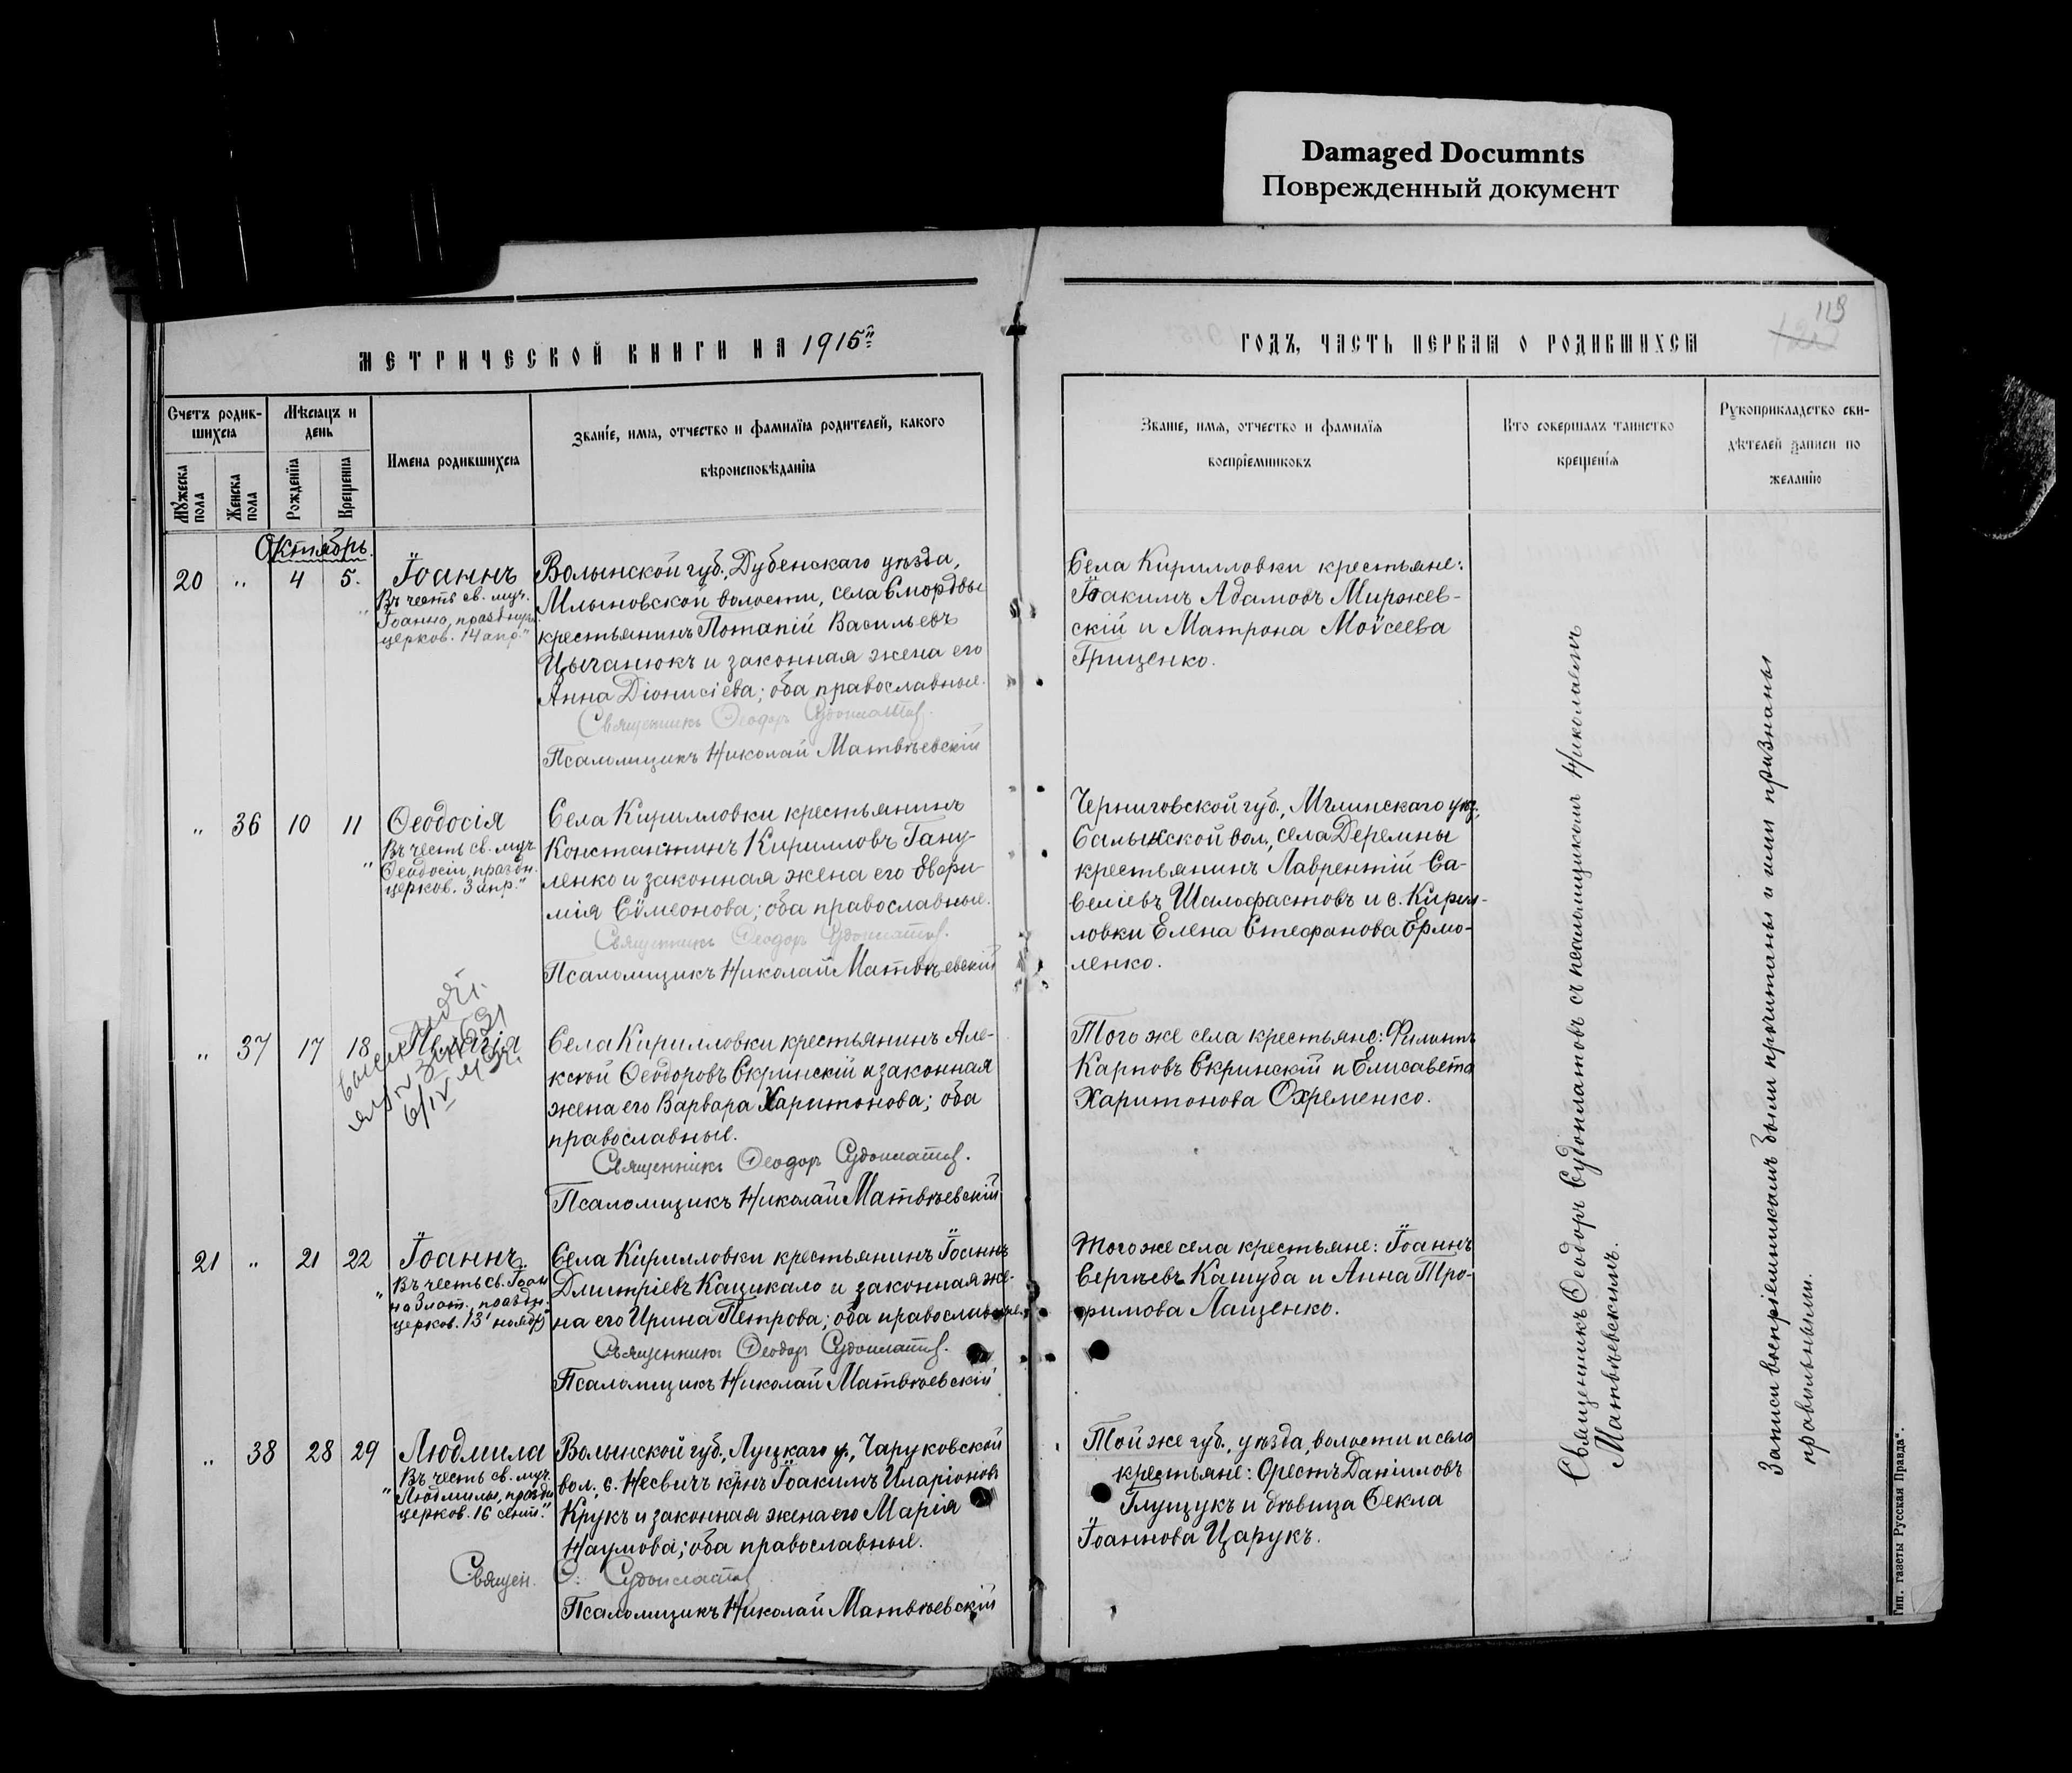 Damaged Documnts
Поврежденный документ
МЕТРИЧЕСКОЙ КНИГИ НА 1915й
ГОДЪ, ЧАСТЬ ПЕРВАЯ О РОДИВШИХСЯ
119
Счетъ родив-
шихся
Мѣсяцъ и
день
Имена родившихся
Званіе, имя, отчество и фамилія родителей, какого
вѣроисповѣданія
Мужеска
пола
Женска
пола
Рожденія
Крещенія
Званіе, имя, отчество и фамилія
воспріемниковъ
Кто совершалъ таинство
крещенія
Рукоприкладство сви-
дѣтелей записи по
желанію
Октябрь.
20 " 4 5.
Іоаннъ
"Въ честь св. муч.
Іоанна, празднуем.
церков. 14 апр."
Волынской губ., Дубенскаго уѣзда,
Млыновской волости, села Смордвы
крестьянинъ Потапій Васильевъ
Цыганюкъ и законная жена его
Анна Діонисіева; оба православные.
Священникъ Ѳеодоръ Судоплатов.
Псаломщикъ Николай Матвѣевскій
Села Кирилловки крестьяне:
Іоакимъ Адамовъ Миржев-
скій и Матрона Моѵсеева
Гриценко.
" 36 10 11
Ѳеодосія
"Въ честь св. муч.
Ѳеодосіи, праздн.
церков. 3 апр."
Села Кирилловки крестьянинъ
Константинъ Кирилловъ Гану-
ленко и законная жена его Евфи-
мія Сѵмеонова; оба православные.
Священникъ Ѳеодоръ Судоплатов.
Псаломщикъ Николай Матвѣевскій
Черниговской губ., Мглинскаго уѣз.,
Салынской вол., села Деремны
крестьянинъ Лаврентій Са-
веліевъ Шалофастовъ и с. Кирил-
ловки Елена Стефанова Ермо-
ленко.
" 37 17 18
Пелагія
6/IV
Села Кирилловки крестьянинъ Але-
ксѣй Ѳеодоровъ Скринскій и законная
жена его Варвара Харитонова; оба
православные.
Священникъ Ѳеодоръ Судоплатов.
Псаломщикъ Николай Матвѣевскій
Того же села крестьяне: Филиппъ
Карповъ Скринскій и Елисавета
Харитонова Охременко.
21 " 21 22
Іоаннъ.
"Въ честь св. Іоан
на Злат., праздн.
церков. 13 ноябр."
Села Кирилловки крестьянинъ Іоаннъ
Дмитріевъ Кацикало и законная же-
на его Ирина Петрова; оба православные.
Священникъ Ѳеодоръ Судоплатов.
Псаломщикъ Николай Матвѣевскій
Того же села крестьяне: Іоаннъ
Сергѣевъ Кашуба и Анна Тро-
фимова Лащенко.
" 38 28 29
Людмила
"Въ честь св. муч.
Людмилы, праздн
церков. 16 сент."
Волынской губ., Луцкаго у., Чаруковской
вол., с. Несвичъ кр-нъ Іоакимъ Иларіоновъ
Крукъ и законная жена его Марія
Наумова; оба православные.
Священ. Ѳ. Судоплатов
Псаломщикъ Николай Матвѣевскій
Той же губ., уѣзда, волости и села
крестьяне: Орестъ Даніиловъ
Глущукъ и дѣвица Ѳекла
Іоаннова Царукъ.
Священникъ Ѳеодоръ Судоплатовъ съ псаломщикомъ Николаемъ
Матвѣевскимъ.
Записи воспріемникамъ были прочитаны и ими признаны
правильными.
Тип. газеты Русская Правда".